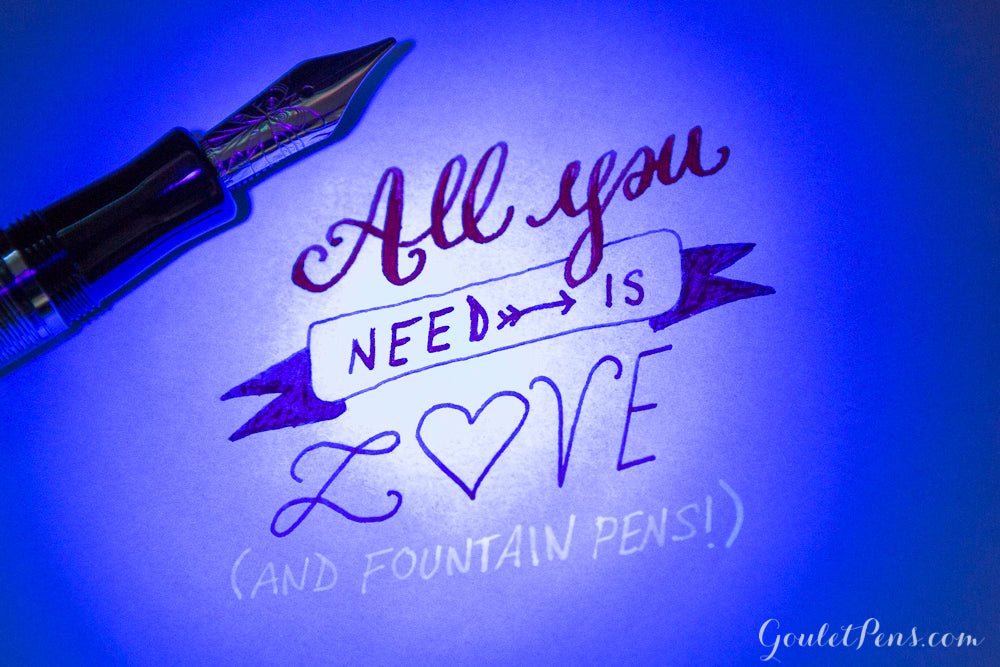 All you
NEED IS
LOVE
(AND FOUNTAIN PENS!)
GouletPens.com